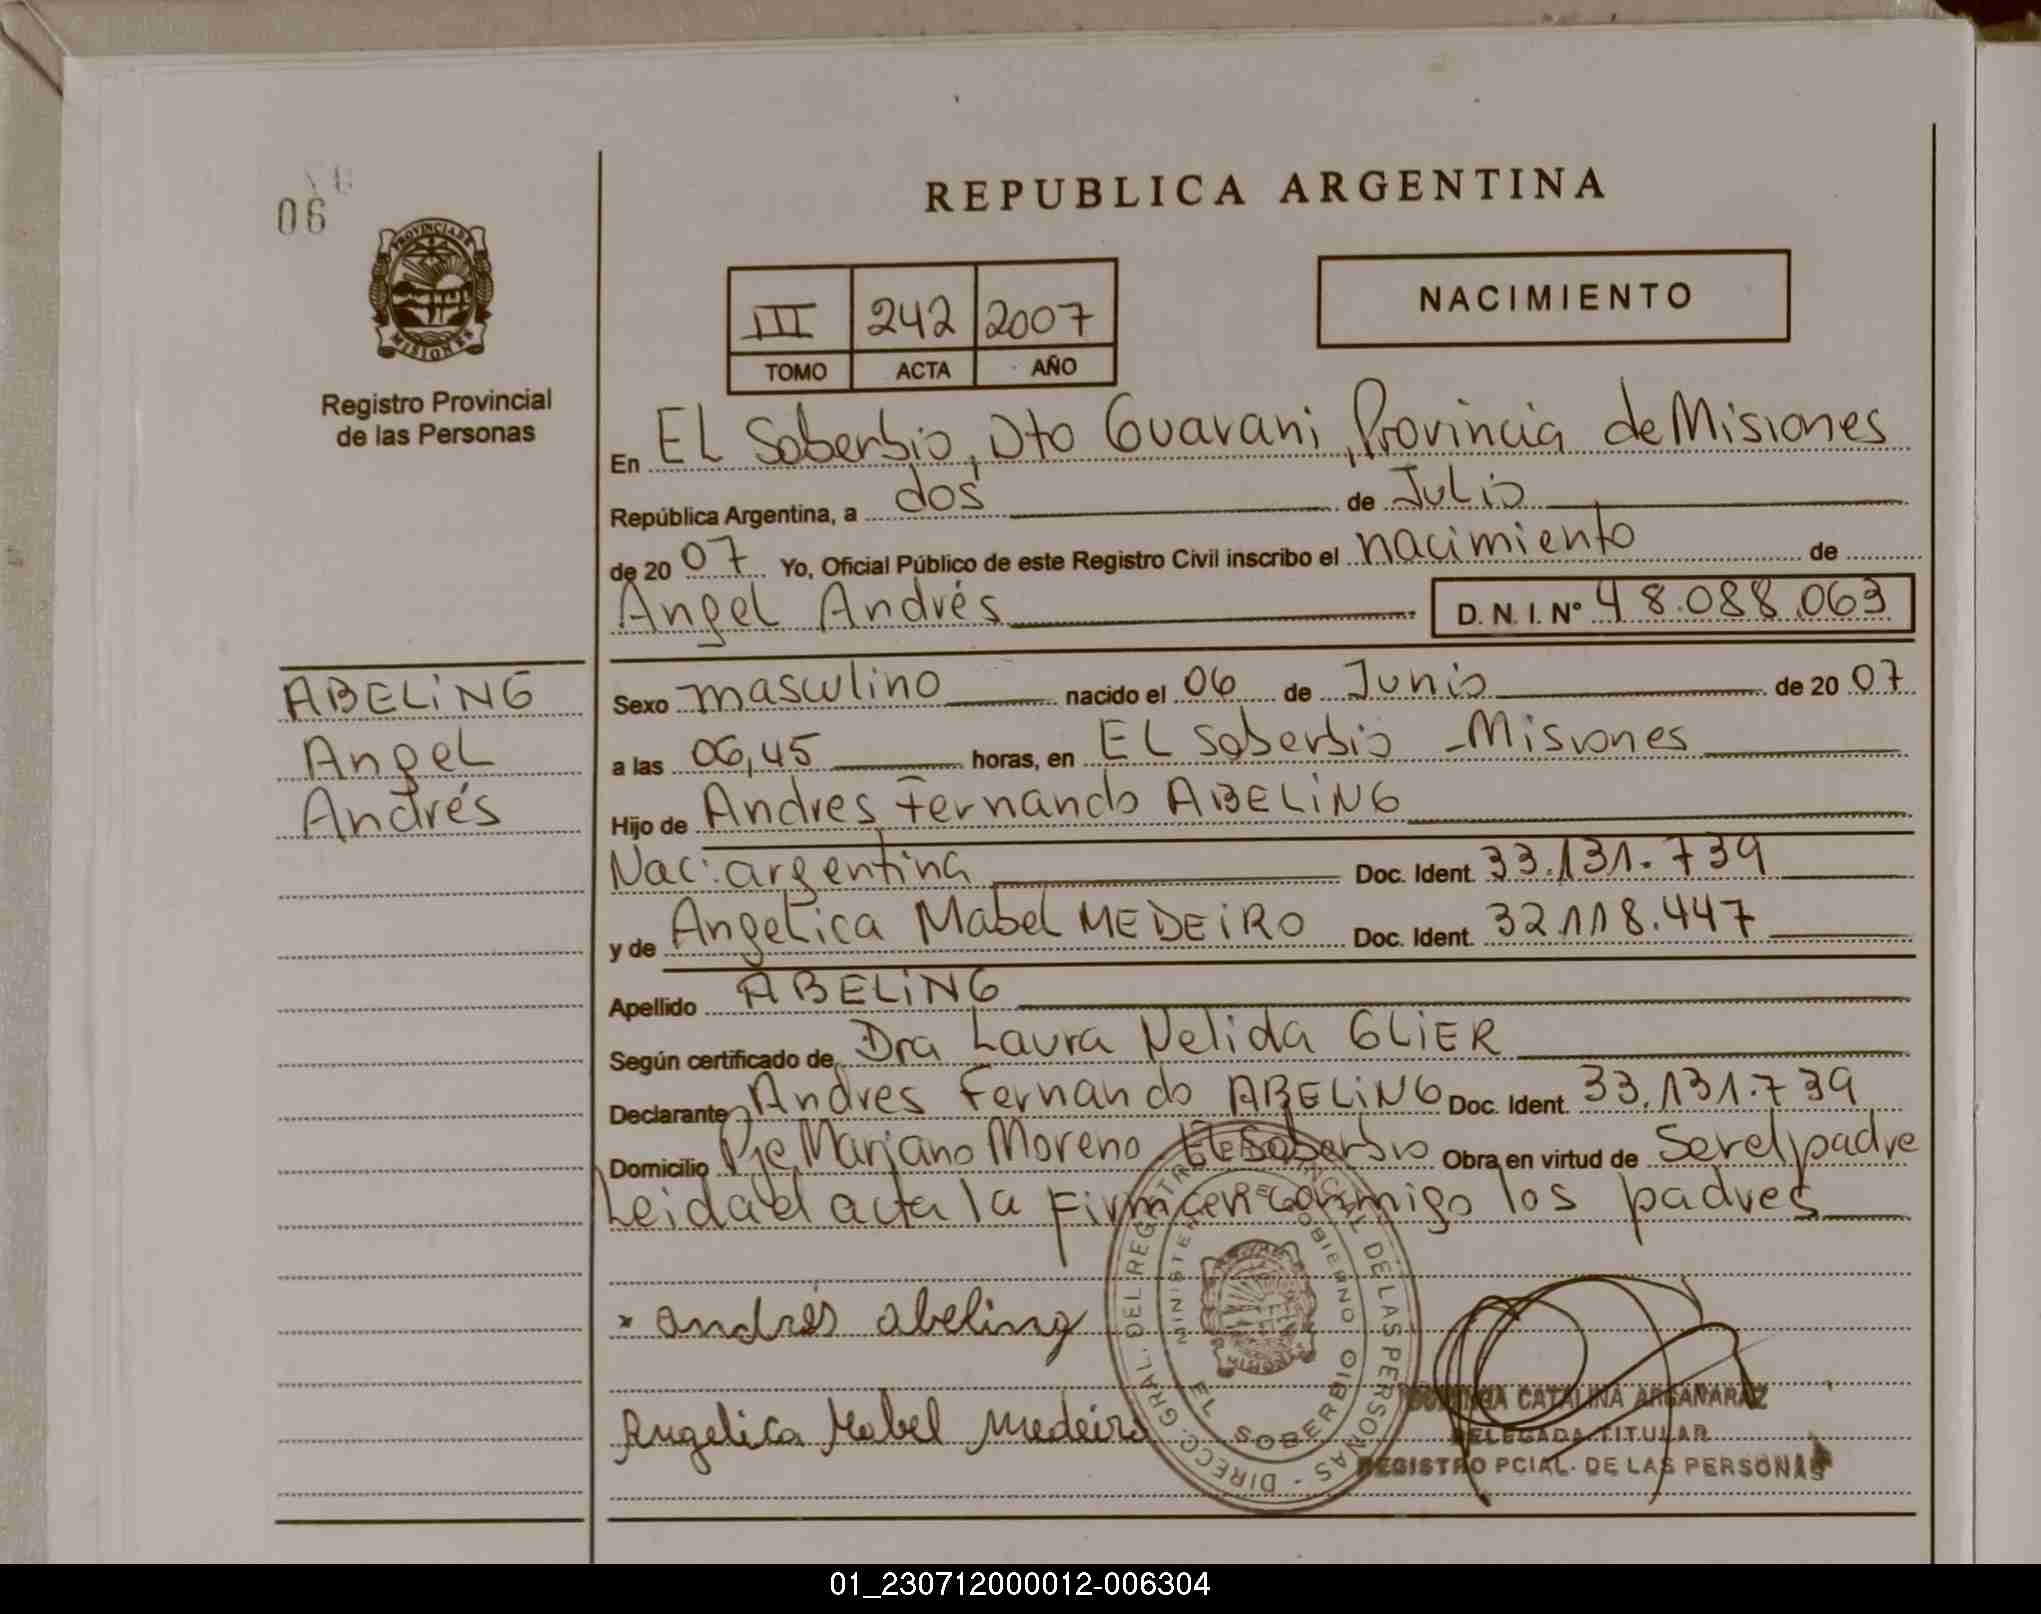 06
PROVINCIA DE
MISIONES
Registro Provincial
de las Personas
REPUBLICA ARGENTINA
III 242 2007
TOMO ACTA AÑO
NACIMIENTO
En EL Soberbio, Dto Guarani, Provincia de Misiones
República Argentina, a dos de Julio
de 20 07 Yo, Oficial Público de este Registro Civil inscribo el nacimiento de
Angel Andrés D. N. I. Nº 48.088.063
ABELING
Angel
Andrés
Sexo masculino nacido el 06 de Junio de 20 07
a las 06,45 horas, en EL Soberbio - Misiones
Hijo de Andres Fernando ABELING
Nac: argentina Doc. Ident. 33.131.739
y de Angelica Mabel MEDEIRO Doc. Ident. 32.118.447
Apellido ABELING
Según certificado de Dra Laura Nelida GLIER
Declarante Andres Fernando ABELING Doc. Ident. 33.131.739
Domicilio Pje Mariano Moreno El Soberbio Obra en virtud de Ser el padre
Leida el acta la firman conmigo los padres
andrés abeling
Angelica Mabel Medeiro
DIRECC. GRAL. DEL REGISTRO PROVINCIAL DE LAS PERSONAS
MINISTERIO DE GOBIERNO
EL SOBERBIO
CATALINA ARGAÑARAZ
DELEGADA TITULAR
REGISTRO PCIAL. DE LAS PERSONAS
01_230712000012-006304